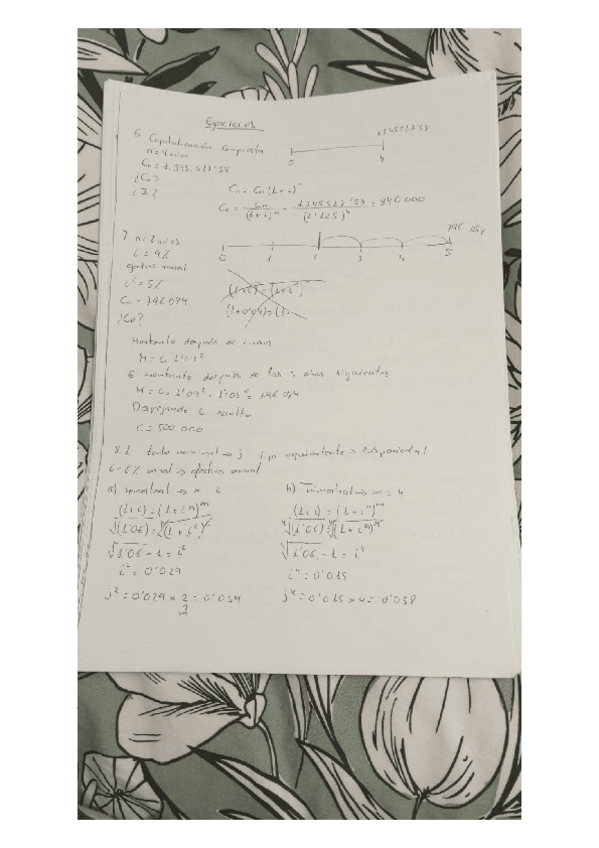 Ejercicios
6. Capitalización Compuesta
n = 4 años
Cn = 1.345.527'58
¿Co?
¿I?
0 4
Cn = Co (1+i)^n
Co = Cn / (1+i)^n = 1345527'58 / (1'125)^4 = 840.000
7. n = 2 años
i = 9%
efectivo anual
i² = 5%
Cn = 796084
¿Co?
3 4 5
Montante después de 2 años
M = Co 1'09²
El montante después de los 3 años siguientes
M = Co 1'09² · 1'05⁶ = 796 084
Despejando C resulta
C = 500 000
8. tanto nominal → j tipo equivalente → subperiodal
anual → efectivo anual
a) semestral → m = 2
(1+i) = (1+i^m)^m
√(1'06) = √(1+i²)²
√1'06 - 1 = i²
i² = 0'029
j² = 0'029 x 2 = 0'059
m
b) Trimestral → m = 4
(1+i) = (1+i^m)^m
⁴√(1'06) = ⁴√(1+i^m)^4
⁴√1'06 - 1 = i⁴
i⁴ = 0'015
j⁴ = 0'015 x 4 = 0'058